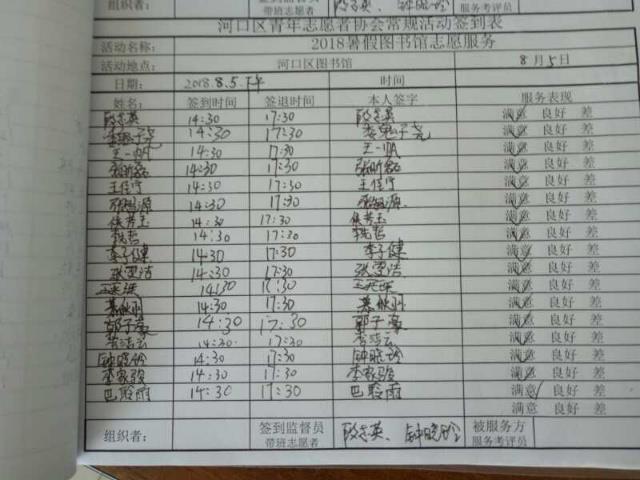 组织者： 签到监督员 带班志愿者 服务考评员
河口区青年志愿者协会常规活动签到表
活动名称： 2018暑假图书馆志愿服务
活动地点： 河口区图书馆 8月5日
日期： 2018.8.5.下午 时间
姓名： 签到时间 签退时间 本人签字 服务表现
段志英 14:30 17:30 段志英 满意 良好 差
14:30 17:30 满意 良好 差
王一帆 14:30 17:30 王一帆 满意 良好 差
14:30 17:30 满意 良好 差
王佳宁 14:30 17:30 王佳宁 满意 良好 差
14:30 17:30 满意 良好 差
侯芳玉 14:30 17:30 侯芳玉 满意 良好 差
魏哲 14:30 17:30 魏哲 满意 良好 差
李子健 14:30 17:30 李子健 满意 良好 差
张雯洁 14:30 17:30 张雯洁 满意 良好 差
14:30 满意 良好 差
14:30 17:30 满意 良好 差
郭子豪 14:30 17:30 郭子豪 满意 良好 差
14:30 17:30 满意 良好 差
钟晓玲 14:30 17:30 钟晓玲 满意 良好 差
李家骏 14:30 17:30 李家骏 满意 良好 差
巴聆雨 14:30 17:30 巴聆雨 满意 良好 差
满意 良好 差
组织者： 签到监督员 带班志愿者 段志英、钟晓玲 被服务方 服务考评员